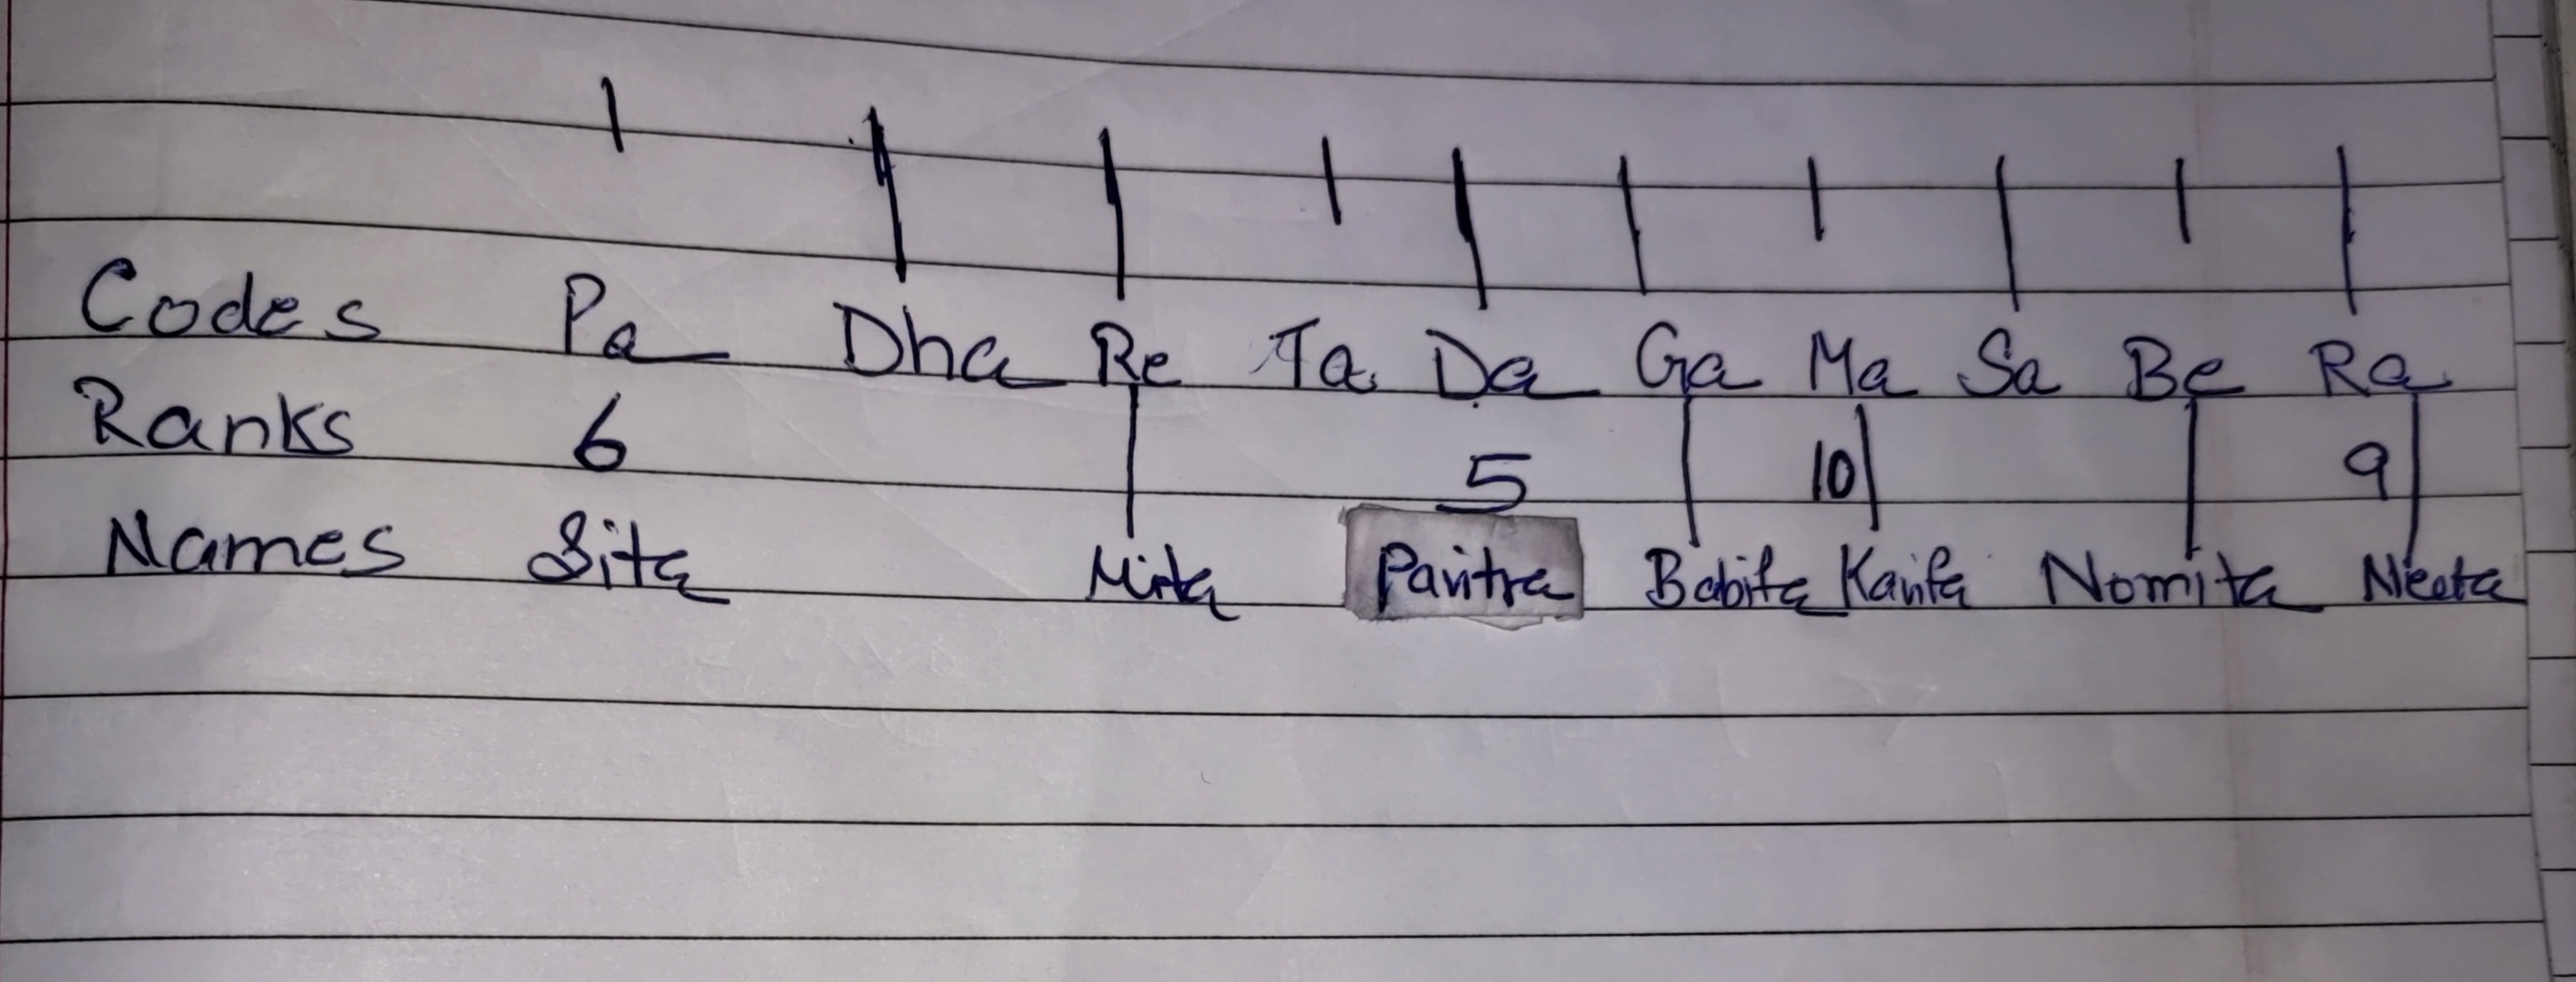 Codes Pa Dha Re Ta Da Ga Ma Sa Be Ra
Ranks 6 5 10 9
Names Sita Mita Pavitra Babita Kavita Nomita Neeta